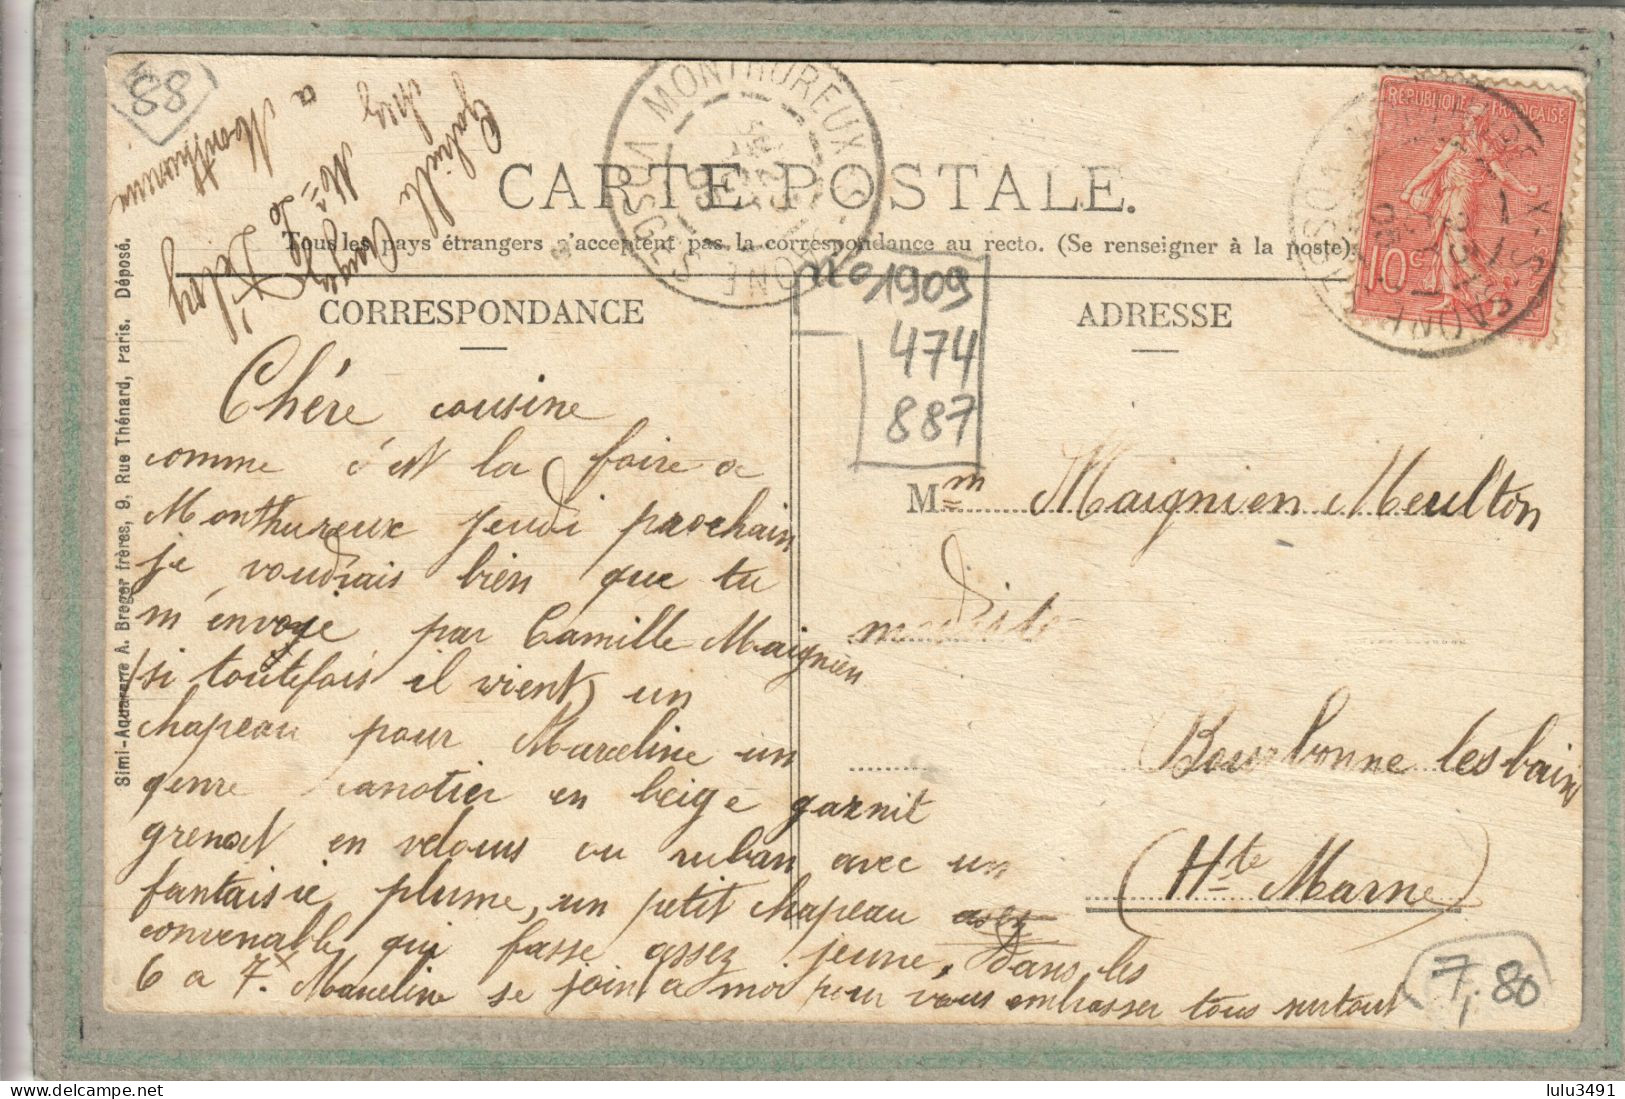 88
CARTE POSTALE.
Tous les pays étrangers n'acceptent pas la correspondance au recto. (Se renseigner à la poste).
MONTHUREUX-S-SAONE
VOSGES
REPUBLIQUE FRANÇAISE
10c
CORRESPONDANCE
ADRESSE
1909
474
887
Chére cousine
comme c'est la foire a
Monthureux jeudi prochain
je voudrais bien que tu
m'envoye par Camille Maignien
si toutefois il vient, un
chapeau pour Marceline un
genre canotier en beige garnit
grenat en velours ou ruban avec un
fantaisie plume, un petit chapeau
convenable qui fasse assez jeune, dans les
6 a 7.f Marceline se joint a moi pour vous embrasser tous surtout
Gabrielle
chez
Mme
Delay
a Monthureux
Mme Maignien Meulton
modiste
Bourbonne les bains
(Hte Marne)
7,80
Simi-Aquarelle A. Breger frères, 9, Rue Thénard, Paris. Déposé.
lulu3491